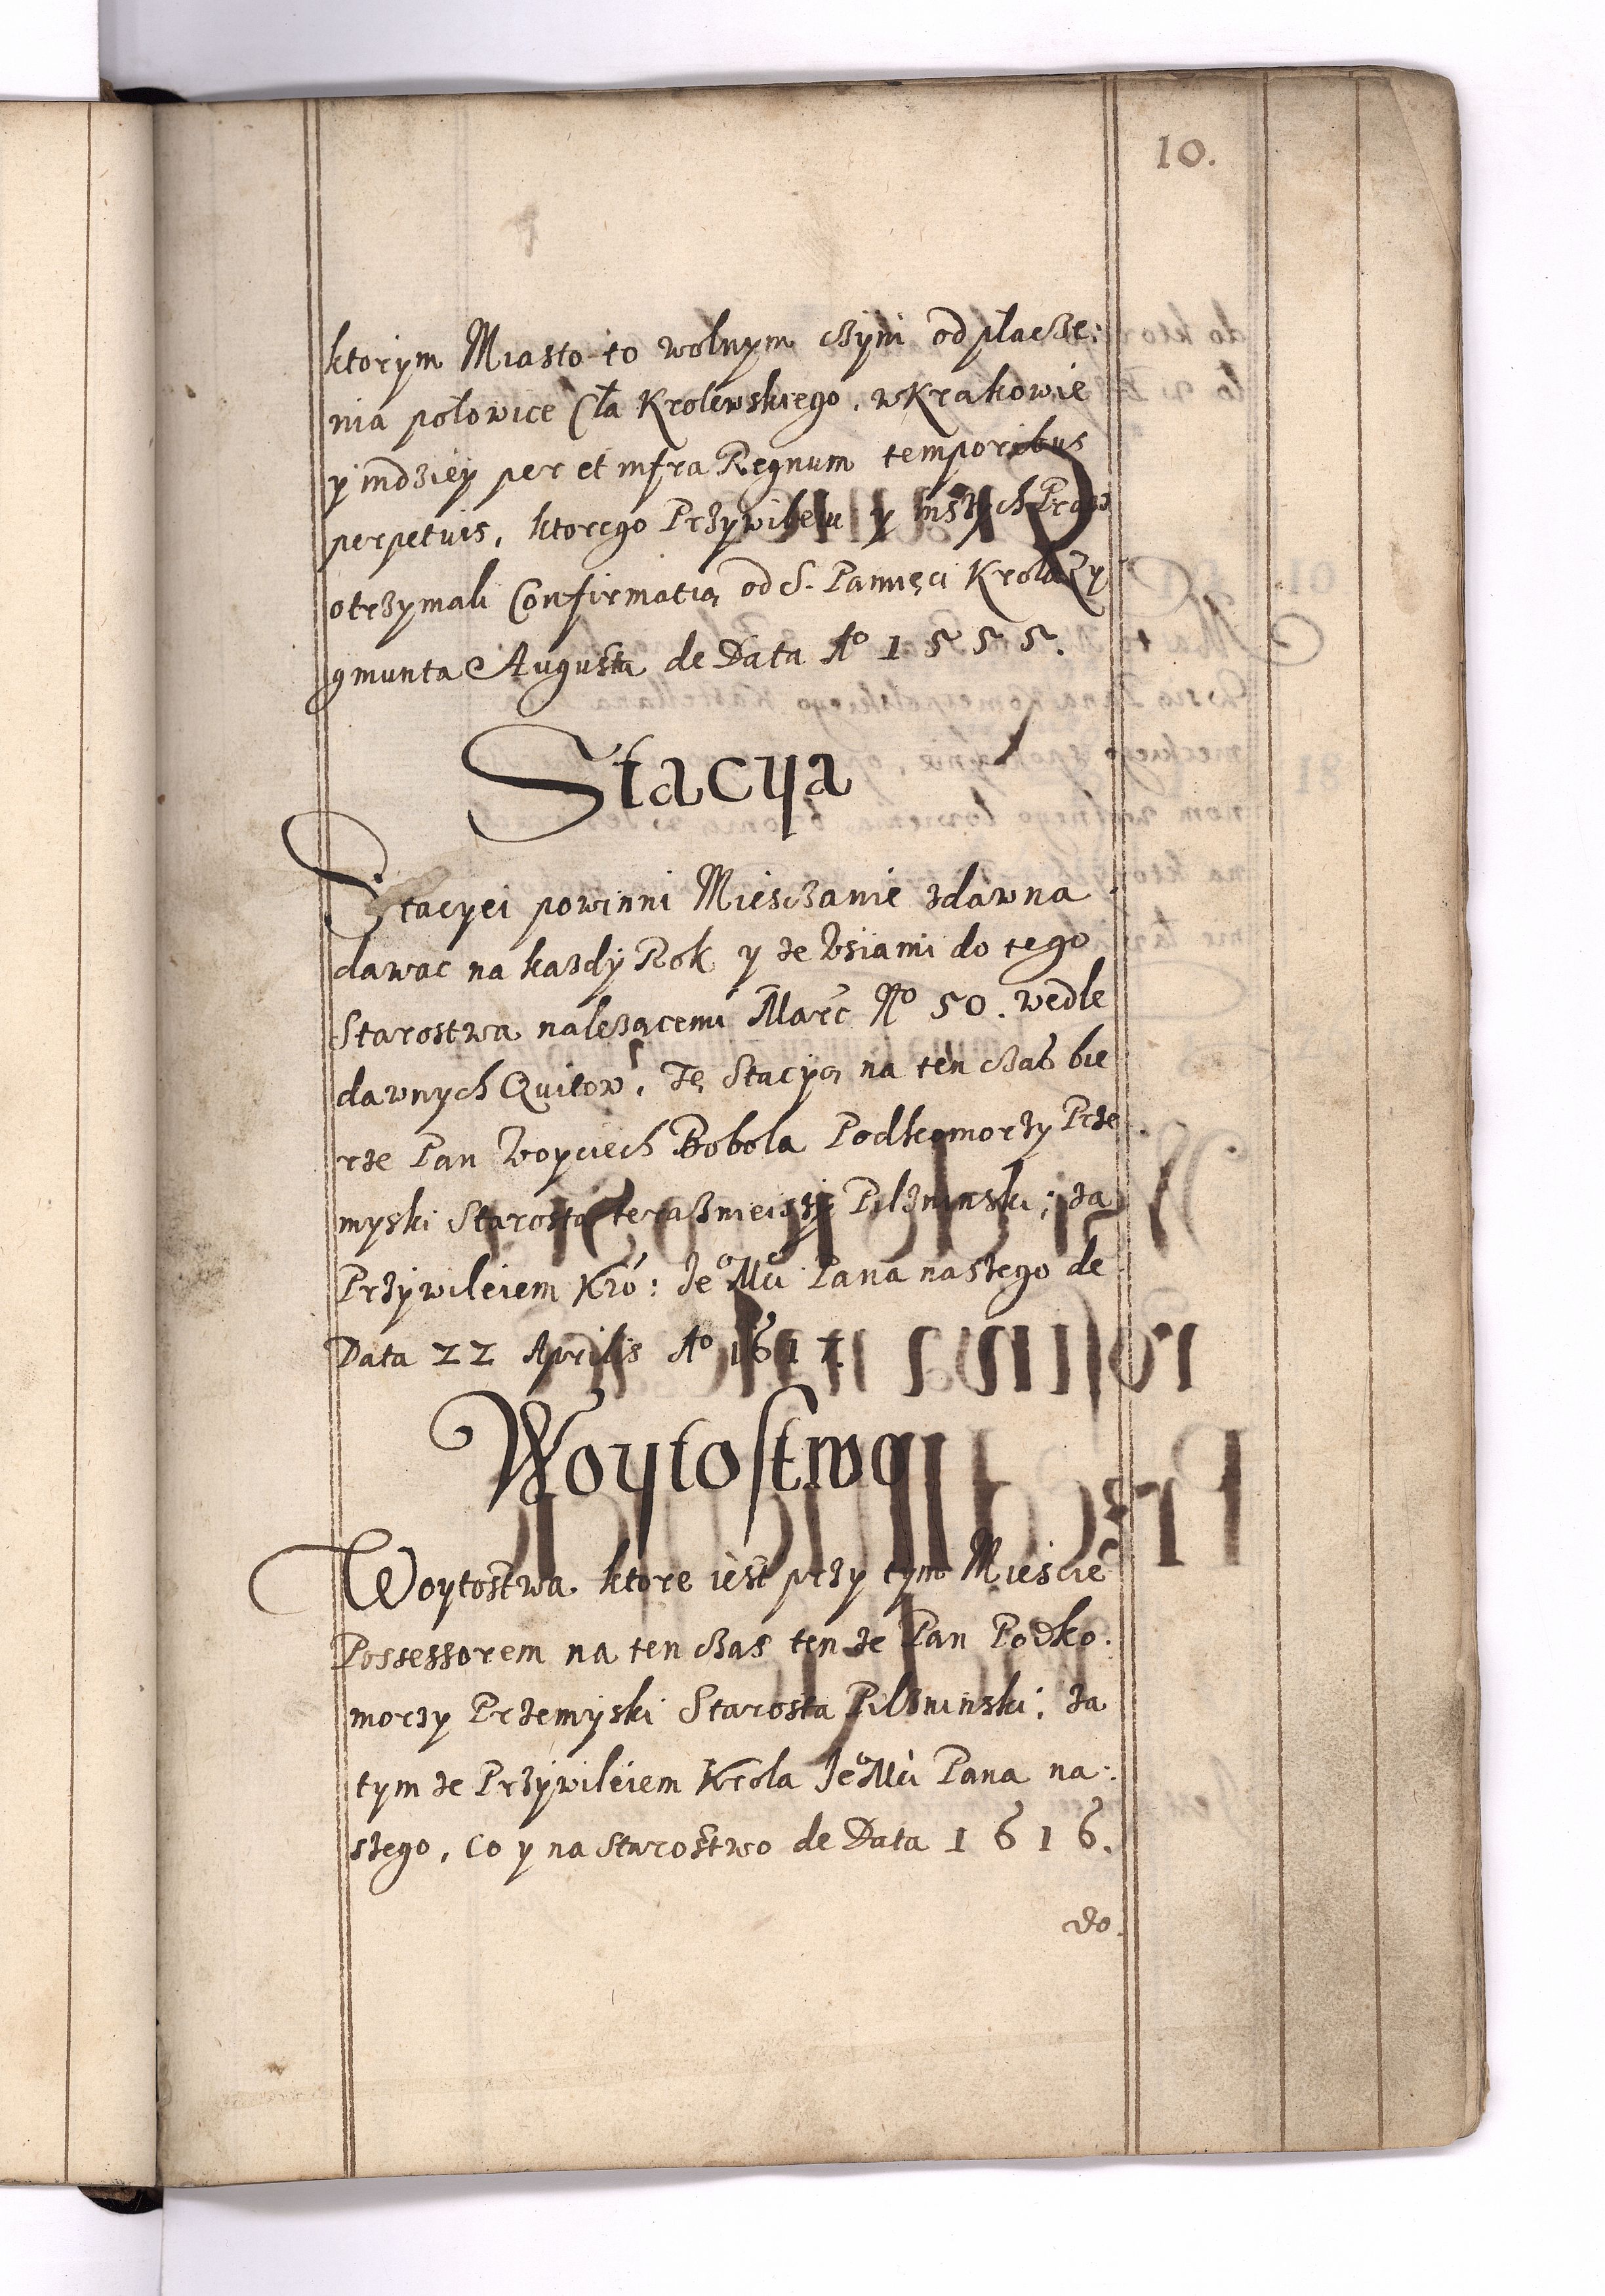 10.
ktorym Miasto to wolnym czÿni od płacze:
nia połowice Cła Krolewskiego, w Krakowie
ÿ indziey per et infra Regnum temporibus
perpetuis, ktorego Przywileiu y inszych Praw
otrzymali Confirmatią od S. Pamięci Krola Zy
gmunta Augusta de Data Aº 1555.
Stacya
Stacyei powinni Miesczanie zdawna
dawac na kazdÿ Rok y ze Wsiami do tego
Starostwa nalezącemi Marc Nº 50. wedle
dawnych Quitow. Tę Stacyą na ten czas bie
rze Pan Woyciech Bobola Podkomorzy Prze
myski Starosta terazniejszy Pilzninski; za
Przywileiem Kró: Jeº Mci Pana naszego de
Data 22 Aprilis Aº 1617.
Woytostwo
Woytostwa ktore iest przy tym Miescie
Possessorem na ten czas ten ze Pan Podko:
morzy Przemyski Starosta Pilzninski; za
tym ze Przÿwileiem Krola Jeº Mci Pana na:
szego, co y na Starostwo de Data 1616.
do